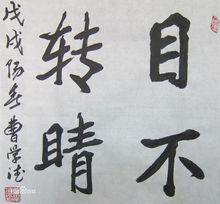 目不
转睛
戊戌阳冬曹学德